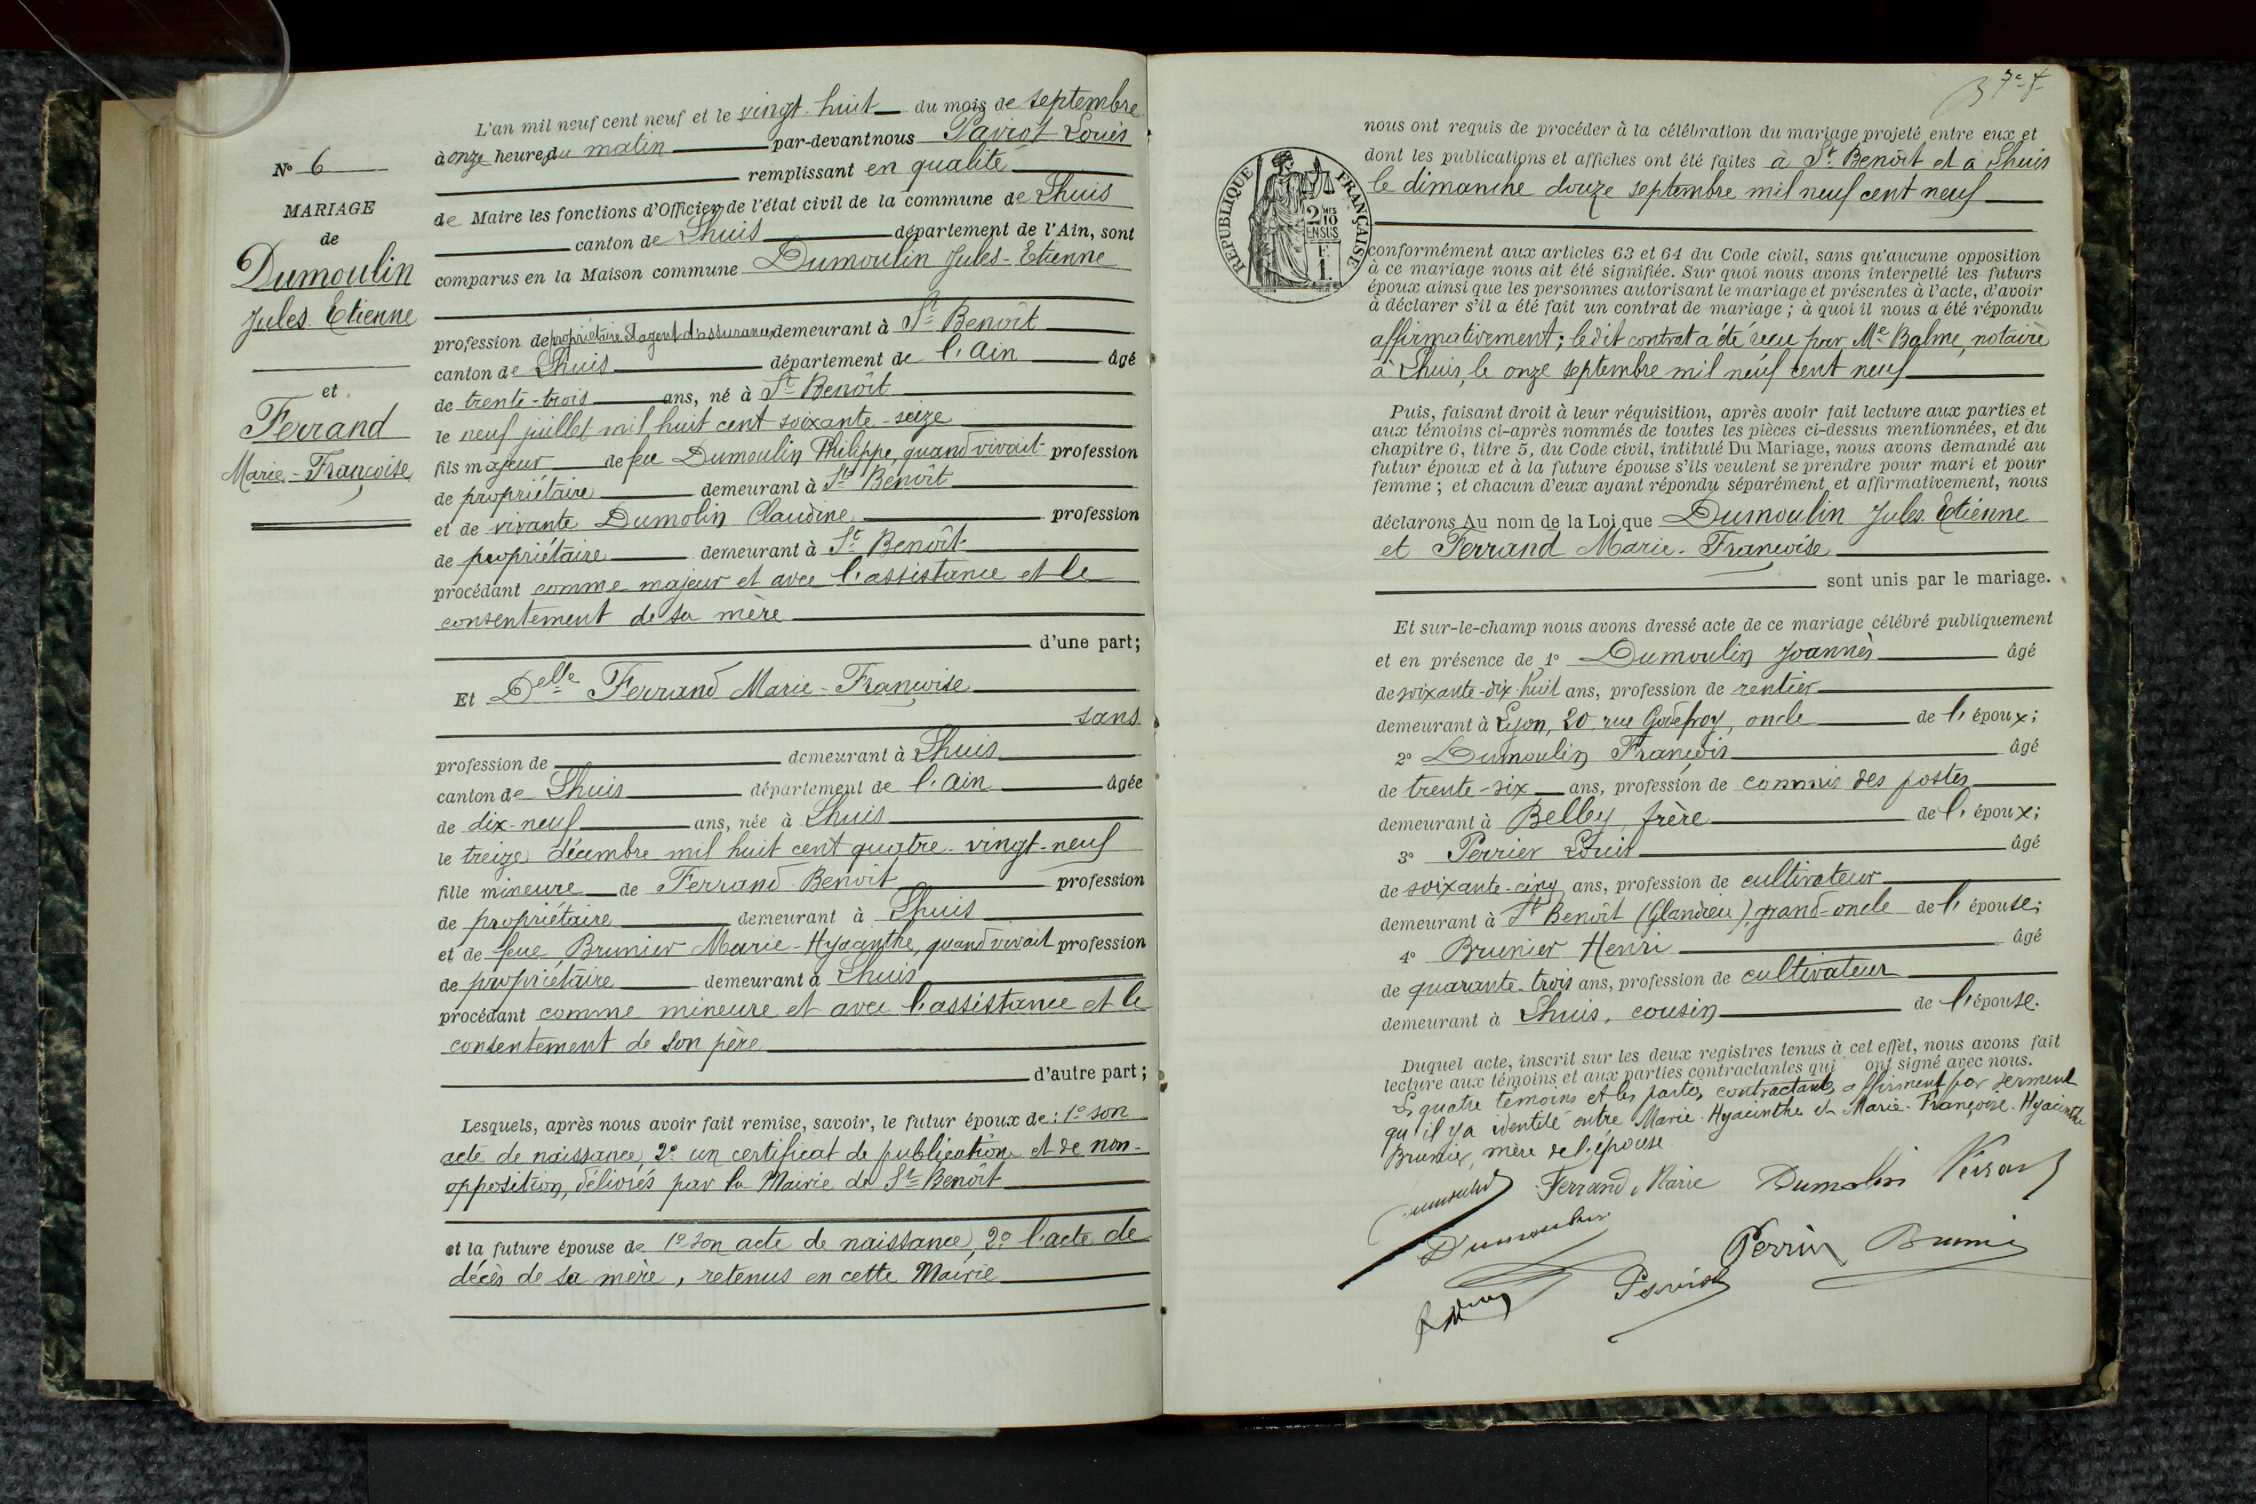 N° 6
MARIAGE
de
Dumoulin
Jules Etienne
et
Ferrand
Marie-Françoise
L'an mil neuf cent neuf et le vingt-huit du mois de septembre
à onze heures du matin par-devant nous Paviot Louis
remplissant en qualité
de Maire les fonctions d'Officier de l'état civil de la commune de Lhuis
canton de Lhuis département de l'Ain, sont
comparus en la Maison commune Dumoulin Jules-Etienne
profession de propriétaire et agent d'assurances demeurant à St Benoît
canton de Lhuis département de l'Ain âgé
de trente-trois ans, né à St Benoît
le neuf juillet mil huit cent soixante-seize
fils majeur de feu Dumoulin Philippe, quand vivait profession
de propriétaire demeurant à St Benoît
et de vivante Dumolin Claudine profession
de propriétaire demeurant à St Benoît
procédant comme majeur et avec l'assistance et le
consentement de sa mère
d'une part;
Et Delle Ferrand Marie-Françoise
sans
profession de demeurant à Lhuis
canton de Lhuis département de l'Ain âgée
de dix-neuf ans, née à Lhuis
le treize décembre mil huit cent quatre-vingt-neuf
fille mineure de Ferrand Benoit profession
de propriétaire demeurant à Lhuis
et de feue Brunier Marie-Hyacinthe, quand vivait profession
de propriétaire demeurant à Lhuis
procédant comme mineure et avec l'assistance et le
consentement de son père
d'autre part;
Lesquels, après nous avoir fait remise, savoir, le futur époux de: 1° son
acte de naissance, 2° un certificat de publication et de non-
opposition, délivrés par la Mairie de St Benoît
et la future épouse de 1° son acte de naissance, 2° l'acte de
décès de sa mère, retenus en cette Mairie
RÉPUBLIQUE FRANÇAISE
2 MES
10
EN SUS
F.
1.
nous ont requis de procéder à la célébration du mariage projeté entre eux et
dont les publications et affiches ont été faites à St Benoît et à Lhuis
le dimanche douze septembre mil neuf cent neuf
conformément aux articles 63 et 64 du Code civil, sans qu'aucune opposition
à ce mariage nous ait été signifiée. Sur quoi nous avons interpellé les futurs
époux ainsi que les personnes autorisant le mariage et présentes à l'acte, d'avoir
à déclarer s'il a été fait un contrat de mariage; à quoi il nous a été répondu
affirmativement; ledit contrat a été reçu par Me Balme, notaire
à Lhuis, le onze septembre mil neuf cent neuf
Puis, faisant droit à leur réquisition, après avoir fait lecture aux parties et
aux témoins ci-après nommés de toutes les pièces ci-dessus mentionnées, et du
chapitre 6, titre 5, du Code civil, intitulé Du Mariage, nous avons demandé au
futur époux et à la future épouse s'ils veulent se prendre pour mari et pour
femme; et chacun d'eux ayant répondu séparément et affirmativement, nous
déclarons Au nom de la Loi que Dumoulin Jules Etienne
et Ferrand Marie-Françoise
sont unis par le mariage.
Et sur-le-champ nous avons dressé acte de ce mariage célébré publiquement
et en présence de 1° Dumoulin Joannès âgé
de soixante-dix-huit ans, profession de rentier
demeurant à Lyon, 20, rue Godefroy, oncle de l'époux;
2° Dumoulin François âgé
de trente-six ans, profession de commis des postes
demeurant à Belley, frère de l'époux;
3° Perrier Louis âgé
de soixante-cinq ans, profession de cultivateur
demeurant à St Benoît (Glandieu), grand-oncle de l'épouse;
4° Brunier Henri âgé
de quarante-trois ans, profession de cultivateur
demeurant à Lhuis, cousin de l'épouse.
Duquel acte, inscrit sur les deux registres tenus à cet effet, nous avons fait
lecture aux témoins et aux parties contractantes qui ont signé avec nous.
Les quatre témoins et les parties contractantes affirment par serment
qu'il y a identité entre Marie-Hyacinthe et Marie-Françoise-Hyacinthe
Brunier, mère de l'épouse.
Ferrand Marie Dumolin
Dumoulin